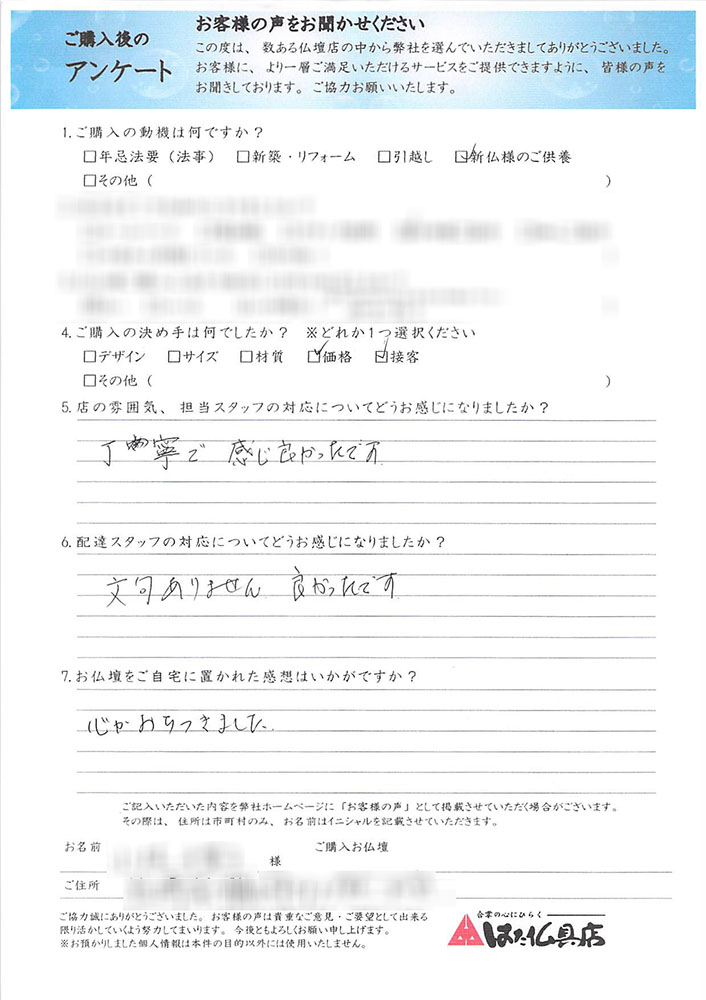 ご購入後の
アンケート
お客様の声をお聞かせください
この度は、数ある仏壇店の中から弊社を選んでいただきましてありがとうございました。
お客様に、より一層ご満足いただけるサービスをご提供できますように、皆様の声を
お聞きしております。ご協力お願いいたします。
1.ご購入の動機は何ですか？
□年忌法要（法事） □新築・リフォーム □引越し ☑新仏様のご供養
□その他（ ）
4.ご購入の決め手は何でしたか？ ※どれか1つ選択ください
□デザイン □サイズ □材質 ☑価格 ☑接客
□その他（ ）
5.店の雰囲気、担当スタッフの対応についてどうお感じになりましたか？
丁寧で 感じ良かったです
6.配達スタッフの対応についてどうお感じになりましたか？
文句ありません 良かったです
7.お仏壇をご自宅に置かれた感想はいかがですか？
心がおちつきました
ご記入いただいた内容を弊社ホームページに「お客様の声」として掲載させていただく場合がございます。
その際は、住所は市町村のみ、お名前はイニシャルを記載させていただきます。
お名前 様 ご購入お仏壇
ご住所
ご協力誠にありがとうございました。お客様の声は貴重なご意見・ご要望として出来る
限り活かしていくよう努力してまいります。今後ともよろしくお願い申し上げます。
※お預かりしました個人情報は本件の目的以外には使用いたしません。
合掌の心にひらく
はた仏具店